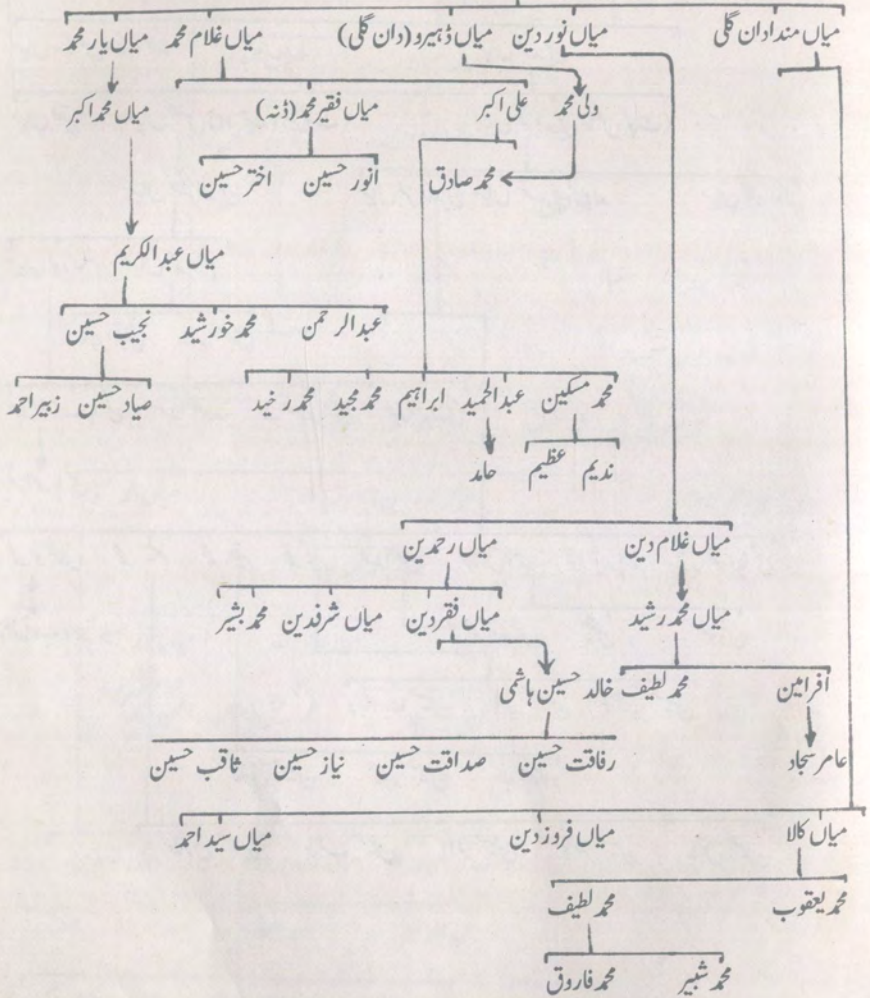 میاں منداد ان گلی میاں نور دین میاں ڈہیرو (دان گلی) میاں غلام محمد میاں یار محمد
ولی محمد علی اکبر میاں فقیر محمد (ڈنہ) میاں محمد اکبر
محمد صادق انور حسین اختر حسین
میاں عبد الکریم
عبد الرحمن محمد خورشید نجیب حسین
محمد مسکین عبد الحمید ابراہیم محمد مجید محمد رخید صیاد حسین زبیر احمد
ندیم عظیم حامد
میاں غلام دین میاں رحمدین
میاں محمد رشید میاں فقردین میاں شرفدین محمد بشیر
افرامین محمد لطیف خالد حسین ہاشمی
عامر سجاد رفاقت حسین صداقت حسین نیاز حسین ثاقب حسین
میاں کالا میاں فروز دین میاں سید احمد
محمد یعقوب محمد لطیف
محمد شبیر محمد فاروق